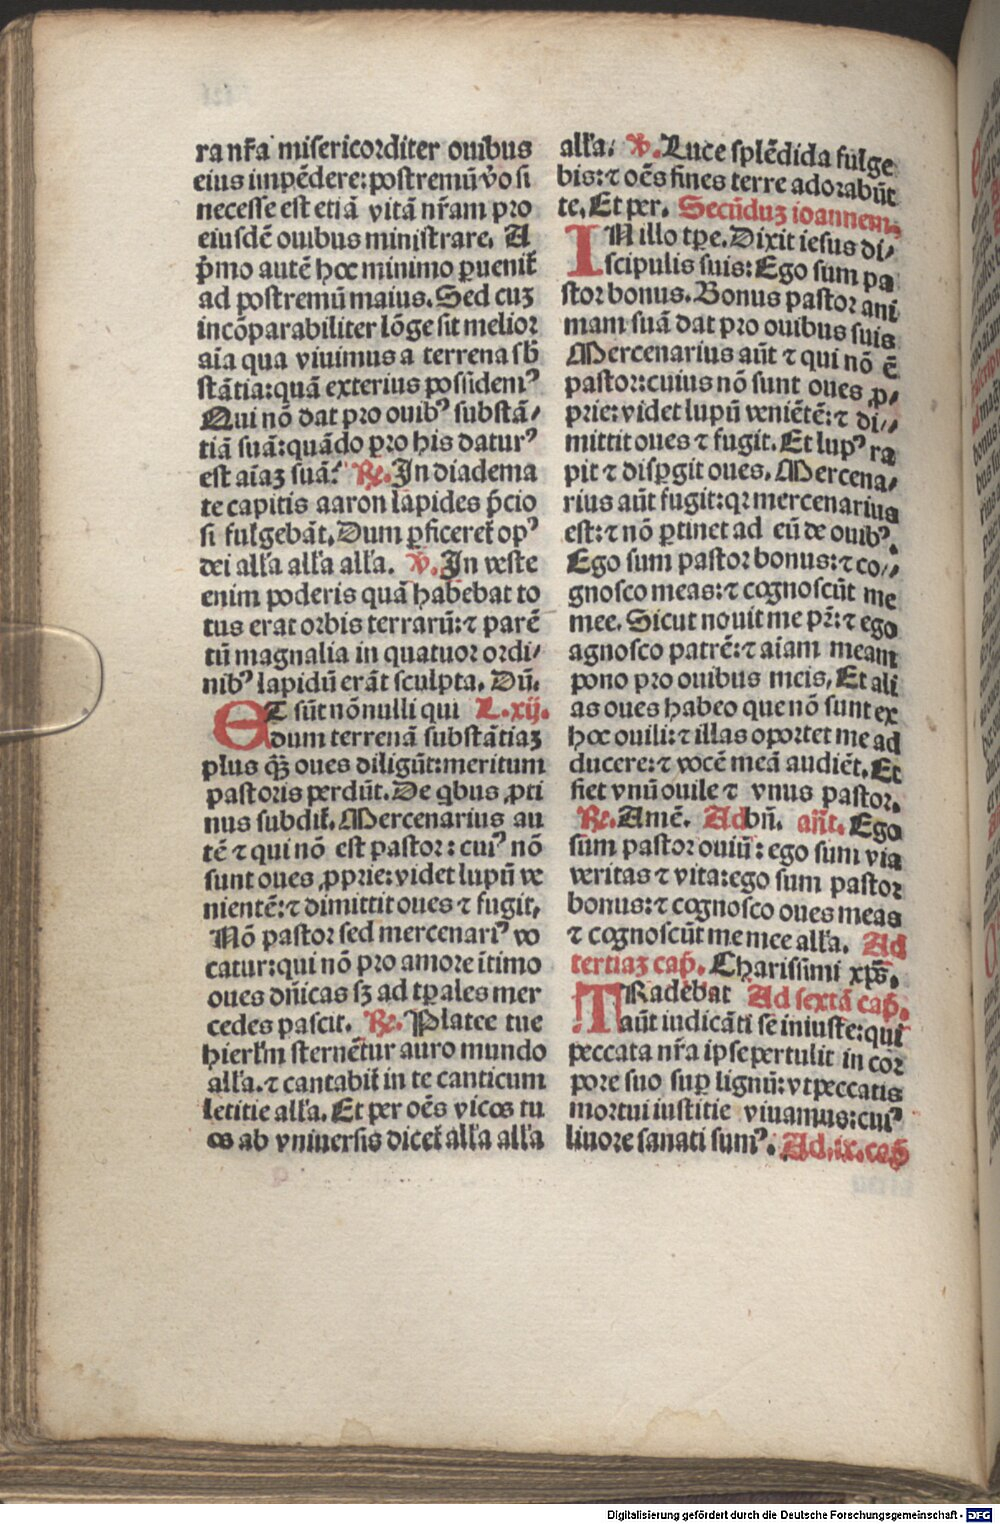 ra nr̃a misericorditer ouibus
eius impẽdere: postremũ v̊o si
necesse est etiã vitã nr̃am pro
eiusdẽ ouibus ministrare. A
p̃mo autẽ hoc minimo ꝑuenit̃
ad postremũ maius. Sed cuȝ
incõparabiliter lõge sit melior
aĩa qua viuimus a terrena sb̃
stãtia: quã exterius possidemꝰ
Qui nõ dat pro ouibꝰ substã/
tiã suã: quãdo pro his daturꝰ
est aĩaȝ suã? ℟. In diadema
te capitis aaron lapides p̃cio
si fulgebãt. Dum ꝑficeret̃ opꝰ
dei all'a all'a all'a. ℣. In veste
enim poderis quã habebat to
tus erat orbis terrarũ: ⁊ parẽ
tũ magnalia in quatuor ordi/
nibꝰ lapidũ erãt sculpta. Dũ.
ET sũt nõnulli qui L. xij.
dum terrenã substãtiaȝ
plus q̃ȝ oues diligũt: meritum
pastoris perdũt. De qbus ꝓti
nus subdit̃. Mercenarius au
tẽ ⁊ qui nõ est pastor: cuiꝰ nõ
sunt oues ꝓprie: videt lupũ ve
nientẽ: ⁊ dimittit oues ⁊ fugit.
Nõ pastor sed mercenariꝰ vo
catur: qui nõ pro amore ĩtimo
oues dñicas sȝ ad tꝑales mer
cedes pascit. ℟. Platee tue
hierl'm sternẽtur auro mundo
all'a. ⁊ cantabit̃ in te canticum
letitie all'a. Et per oẽs vicos tu
os ab vniuersis dicet̃ all'a all'a
all'a. ℣. Luce splẽdida fulge
bis: ⁊ oẽs fines terre adorabũt
te. Et per. Secũduȝ ioannem.
IN illo tꝑe. Dixit iesus di/
scipulis suis: Ego sum pa
stor bonus. Bonus pastor ani
mam suã dat pro ouibus suis
Mercenarius aũt ⁊ qui nõ ẽ
pastor: cuius nõ sunt oues ꝓ/
prie: videt lupũ veniẽtẽ: ⁊ di//
mittit oues ⁊ fugit. Et lupꝰ ra
pit ⁊ disꝑgit oues. Mercena/
rius aũt fugit: qꝛ mercenarius
est: ⁊ nõ ꝑtinet ad eũ de ouibꝰ.
Ego sum pastor bonus: ⁊ co//
gnosco meas: ⁊ cognoscũt me
mee. Sicut nouit me pr̃: ⁊ ego
agnosco patrẽ: ⁊ aiam meam
pono pro ouibus meis. Et ali
as oues habeo que nõ sunt ex
hoc ouili: ⁊ illas oportet me ad
ducere: ⁊ vocẽ meã audiẽt. Et
fiet vnũ ouile ⁊ vnus pastor.
℟. Amẽ. Ad bñ. añt. Ego
sum pastor ouiũ: ego sum via
veritas ⁊ vita: ego sum pastor
bonus: ⁊ cognosco oues meas
⁊ cognoscũt me mee all'a. Ad
tertiaȝ cap̃. Charissimi xp̃s.
TRadebat Ad sextã cap̃.
aũt iudicãti se iniuste: qui
peccata nr̃a ipse pertulit in cor
pore suo suꝑ lignũ: vt peccatis
mortui iustitie viuamus: cuiꝰ
liuore sanati sumꝰ. Ad. ix. cap̃
Digitalisierung gefördert durch die Deutsche Forschungsgemeinschaft - DFG